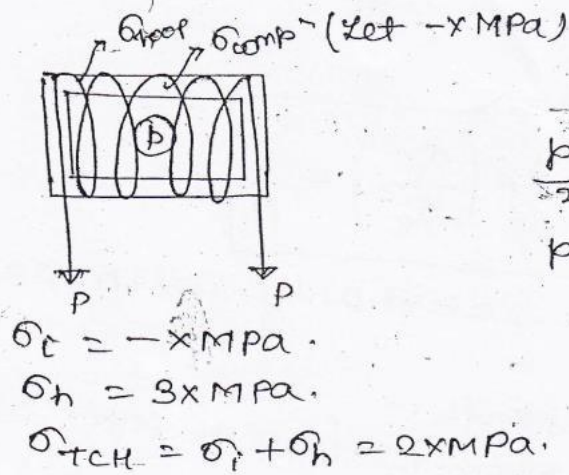 σhoop σcomp (Let -x MPa)
p
p
2
p
P P
σi = -x MPa.
σh = 3x MPa.
σTCH = σi + σh = 2x MPa.